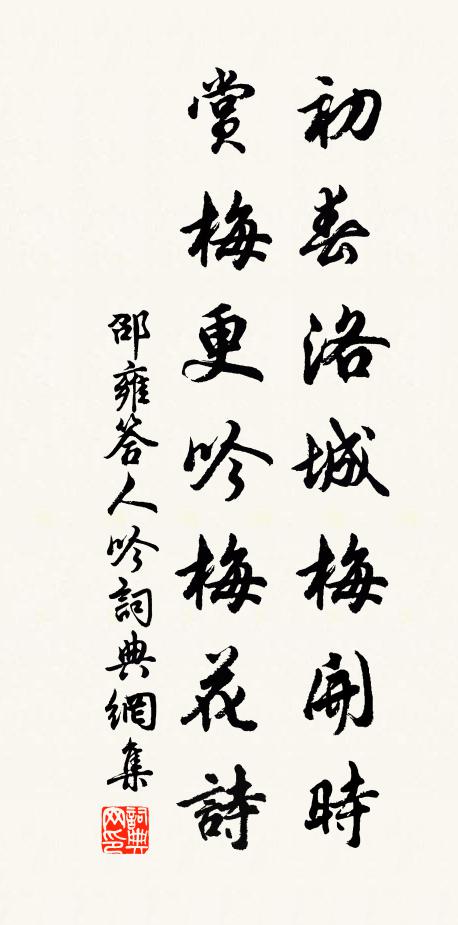 初春洛城梅開時
賞梅更吟梅花詩
邵雍答人吟詞典網集
詞典网印